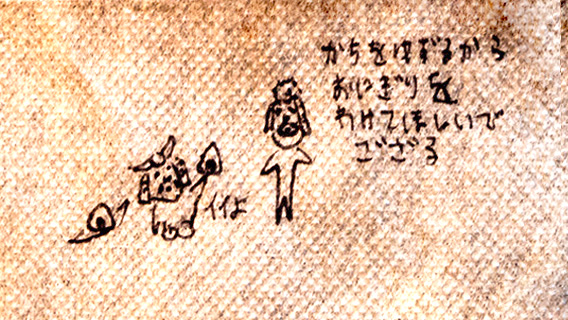 かちをゆずるから
おにぎりを
わけてほしいで
ござる
イイよ